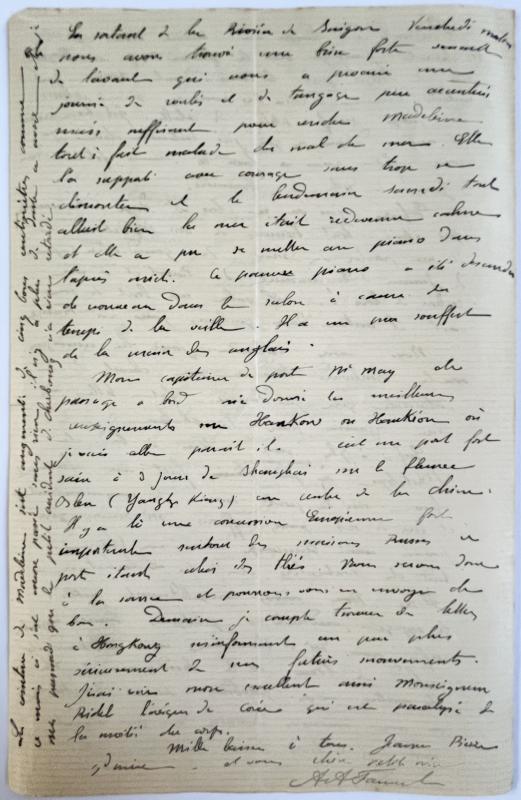 La sortant de la Rivière de Saigon Vendredi matin
nous avons trouvé une brise forte venant
de l'avant qui nous a procuré une
journée de roulis et de tangage peu accentués
mais suffisant pour rendre Madeleine
tout à fait malade du mal de mer. Elle
l'a supporté avec courage sans trop se
démonter et le lendemain samedi tout
allait bien la mer était redevenue calme
et elle a pu se mettre au piano dans
l'après midi. Ce pauvre piano a été descendu
de nouveau dans le salon à cause du
temps de la veille. Il a un peu souffert
de la main des anglais.
Mon capitaine de port Mr May de
passage a bord m'a donné les meilleurs
renseignements sur Hankow ou Hankéou où
je vais aller paraît-il. C'est un port fort
sain à 3 jours de Shanghai sur le fleuve
(Yangtze Kiang) au centre de la Chine.
Il y a là une concession Européenne fort
importante surtout des maisons Russes ce
port étant celui des thés. Nous serons donc
à la source et pourrons vous en envoyer du
bon. Demain je compte trouver des lettres
à Hongkong m'informant un peu plus
sérieusement de nos futurs mouvements.
J'irai voir mon excellent ami Monseigneur
Ridel l'évêque de Corée qui est paralysé de
la moitié du corps.
Mille baisers à tous. Jeanne Pierre
et vous chère
La ceinture de Madeleine est augmentée de cinq bons centimètres comme
ce mois-ci est encore passé sans rien il n'y a plus de doute à avoir
me persuade que le petit accident de Cherbourg l'a